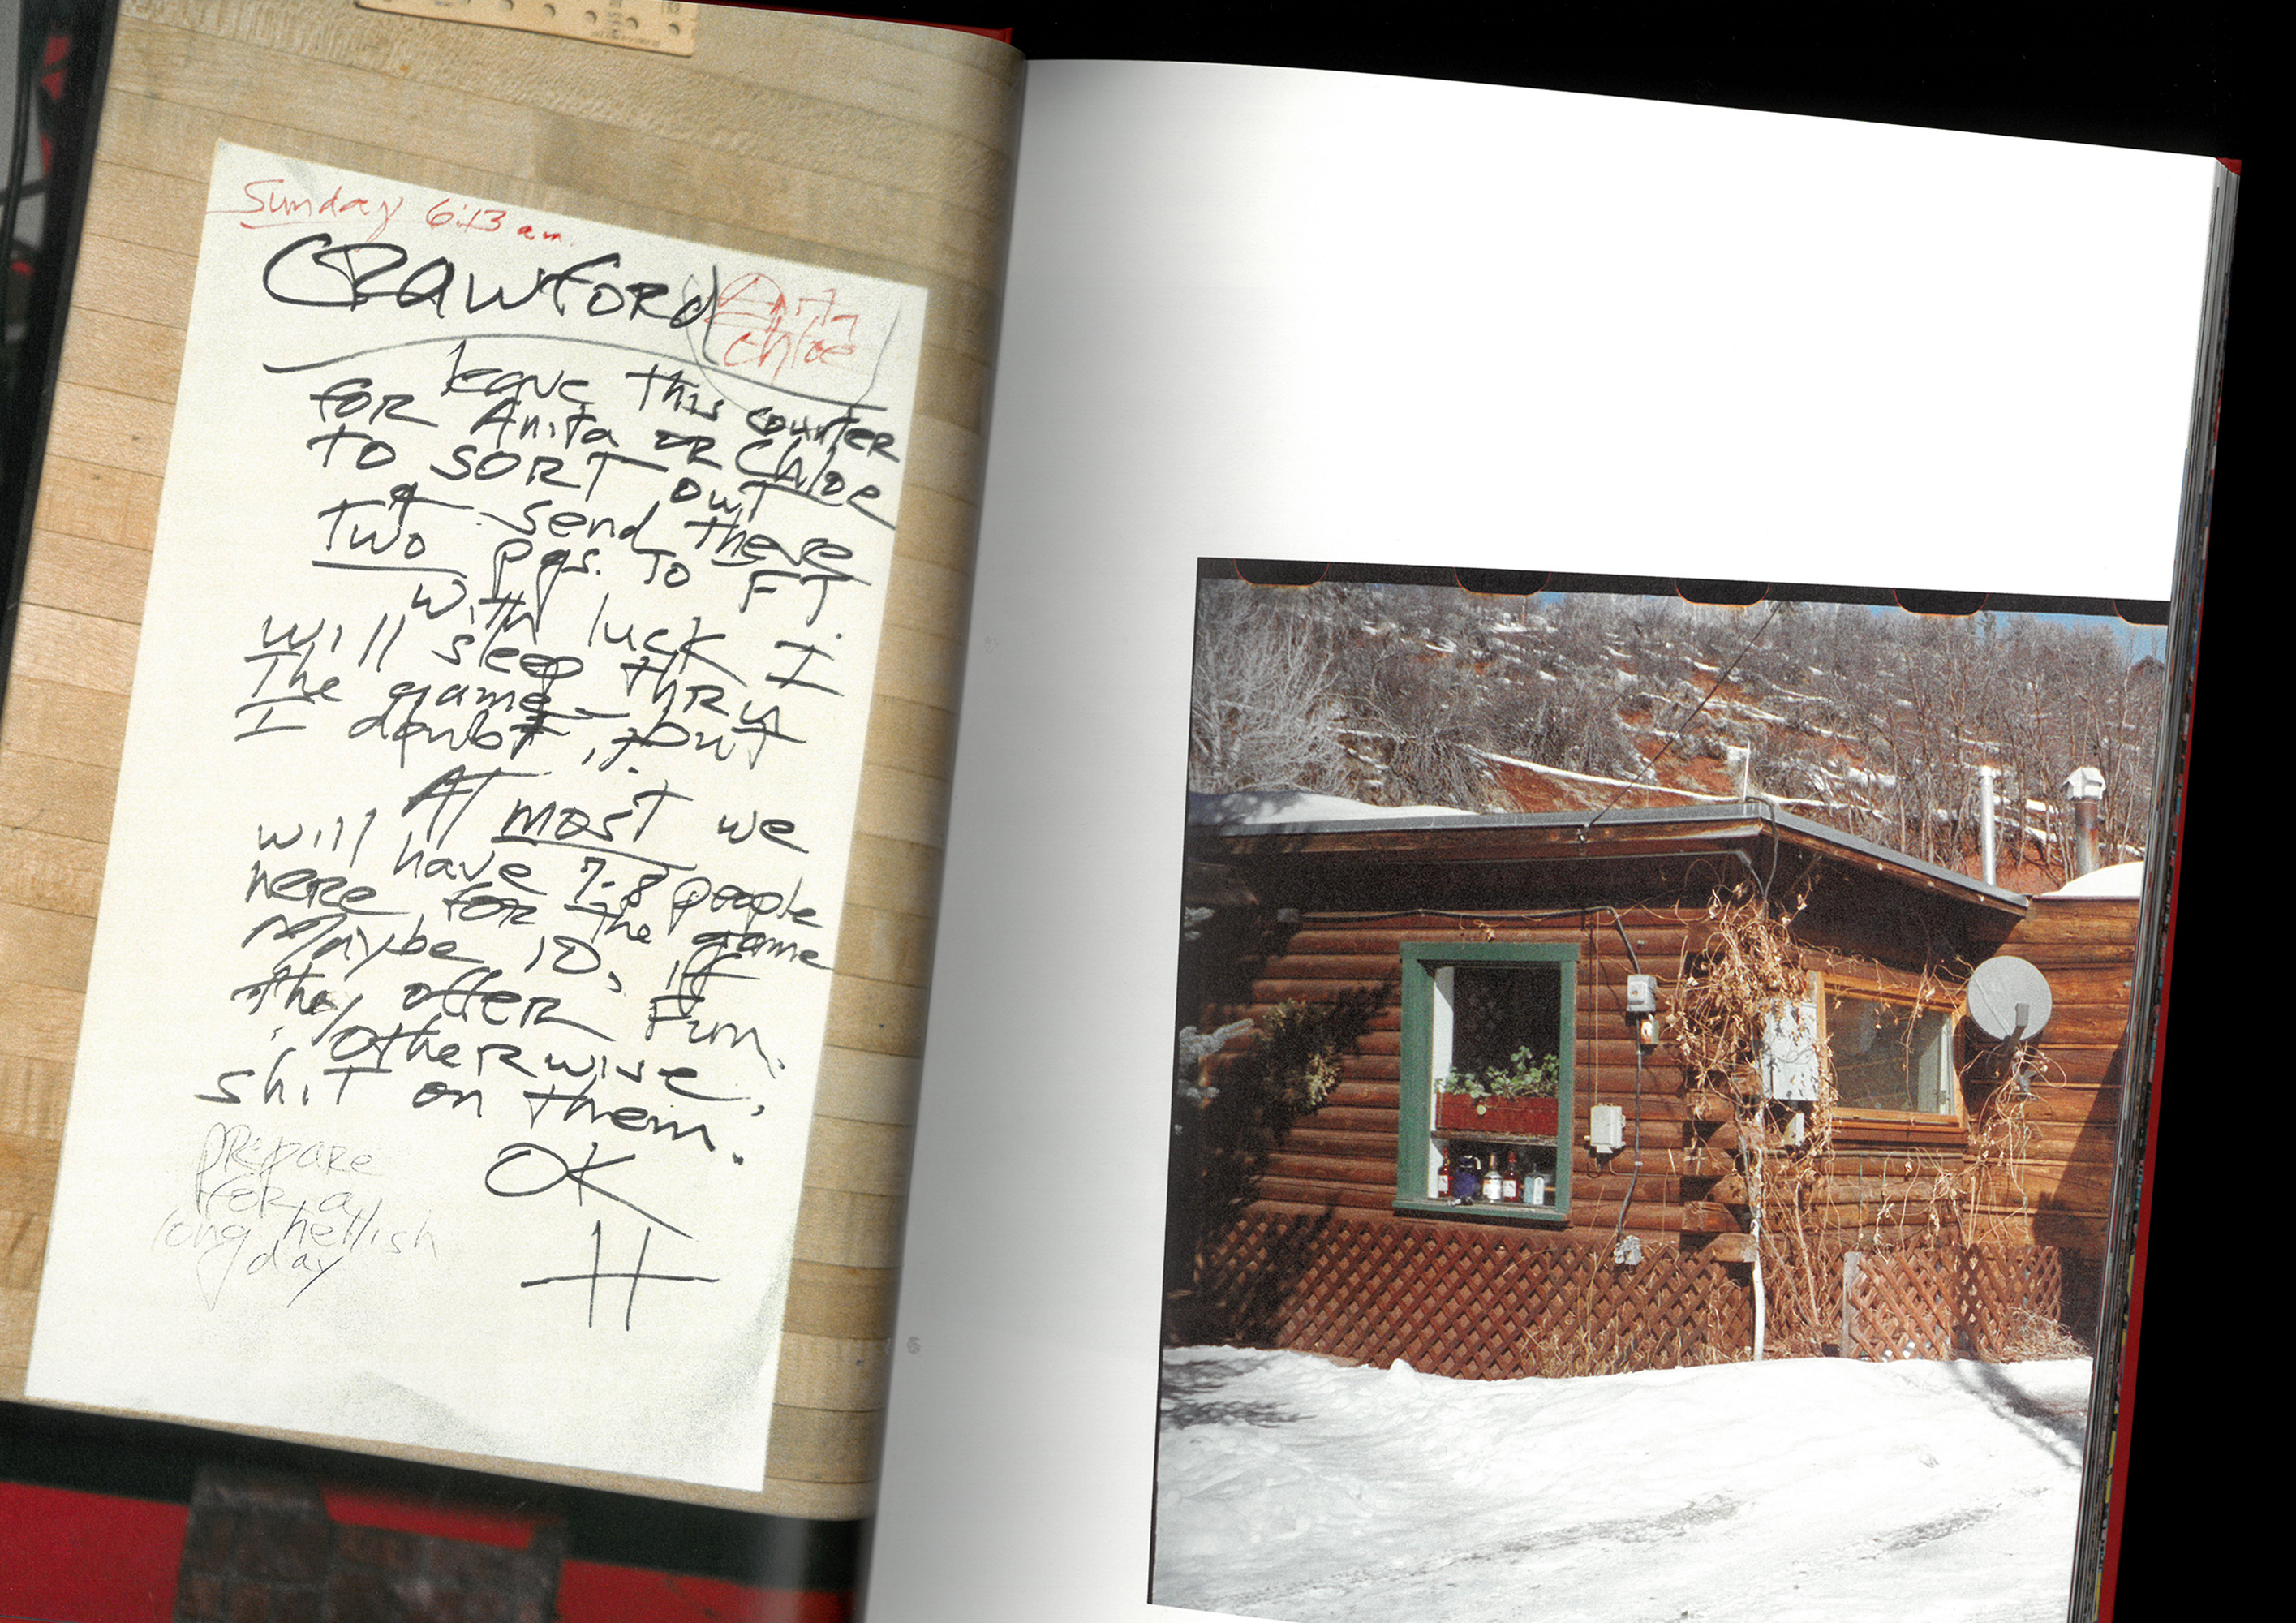 Sunday 6:13 am.
CRawFord
Anita
chloe
leave this counter
for Anita or Chloe
TO SORT out
& send these
Two pgs. To FT.
with luck I
will sleep thru
The game, but
I doubt it.
At most we
will have 7-8 people
here for the game
Maybe 10, if
they offer Fun.
Otherwise,
shit on them.
OK
H
prepare
for a
long hellish
day